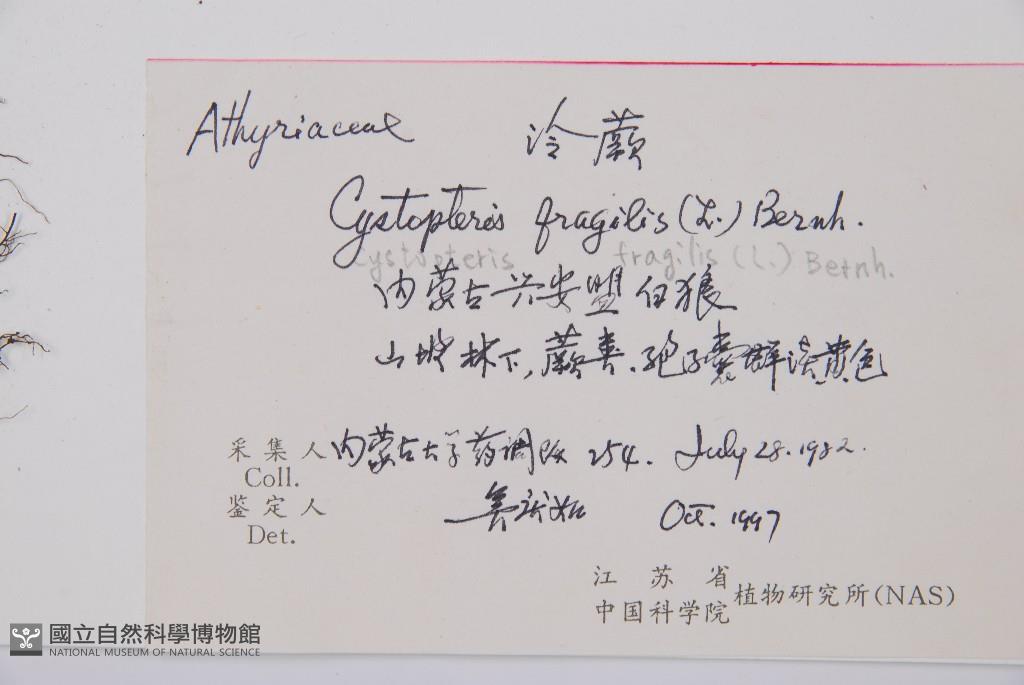 Athyriaceae 冷蕨
Cystopteris fragilis (L.) Bernh.
Cystopteris fragilis (L.) Bernh.
内蒙古兴安盟白狼
山坡林下,蕨类.孢子囊群淡黄色
采集人 内蒙古大学药调队 254. July 28. 1982.
Coll.
鉴定人 Oct. 1997
Det.
江苏省
中国科学院 植物研究所(NAS)
國立自然科學博物館
NATIONAL MUSEUM OF NATURAL SCIENCE